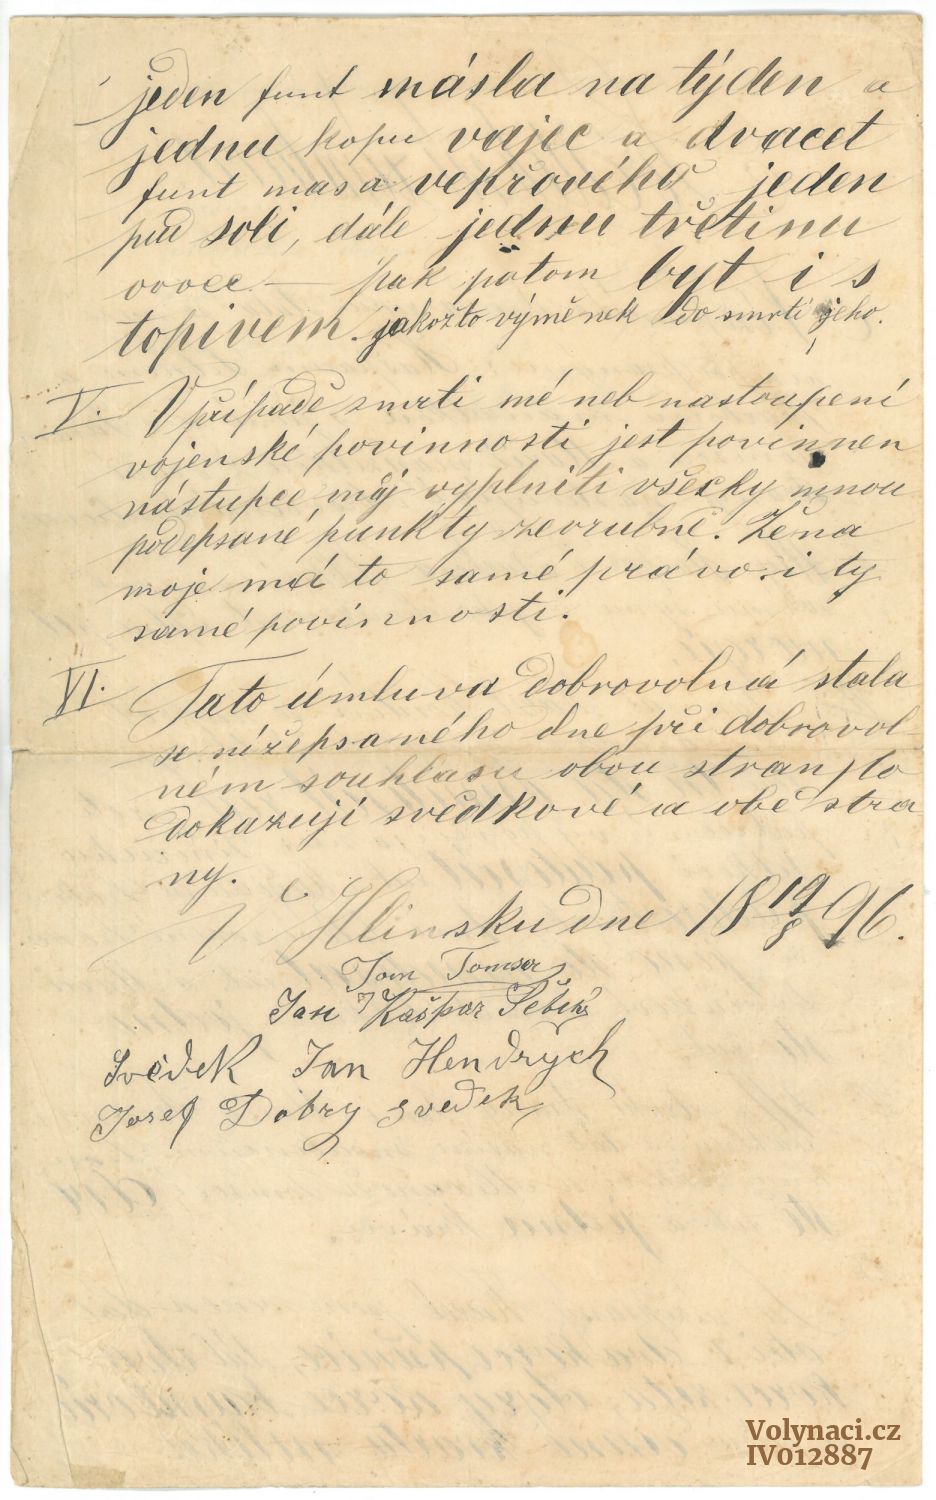 jeden funt másla na týden a
jednu kopu vajec a dvacet
funt masa vepřového jeden
pud soli, dále jednu třetinu
ovoce — pak potom byt i s
topivem. jakožto výměnek do smrti jeho.
V. V případě smrti mé neb nastoupení
vojenské povinnosti jest povinnen
nástupce můj vyplniti všecky mnou
podepsané punkty zevrubně. Žena
moje má to samé právo i ty
samé povinnosti.
VI. Tato úmluva dobrovolná stala
se nížepsaného dne při dobrovol-
ném souhlasu obou stran, to
dokazují svědkové a obě stra
ny.
V Hlinsku dne 18 19/8 96.
Jan Tomser
Jan Kašpar Šebek
Svědek Jan Hendrych
Josef Dobry svedek
Volynaci.cz
IV012887